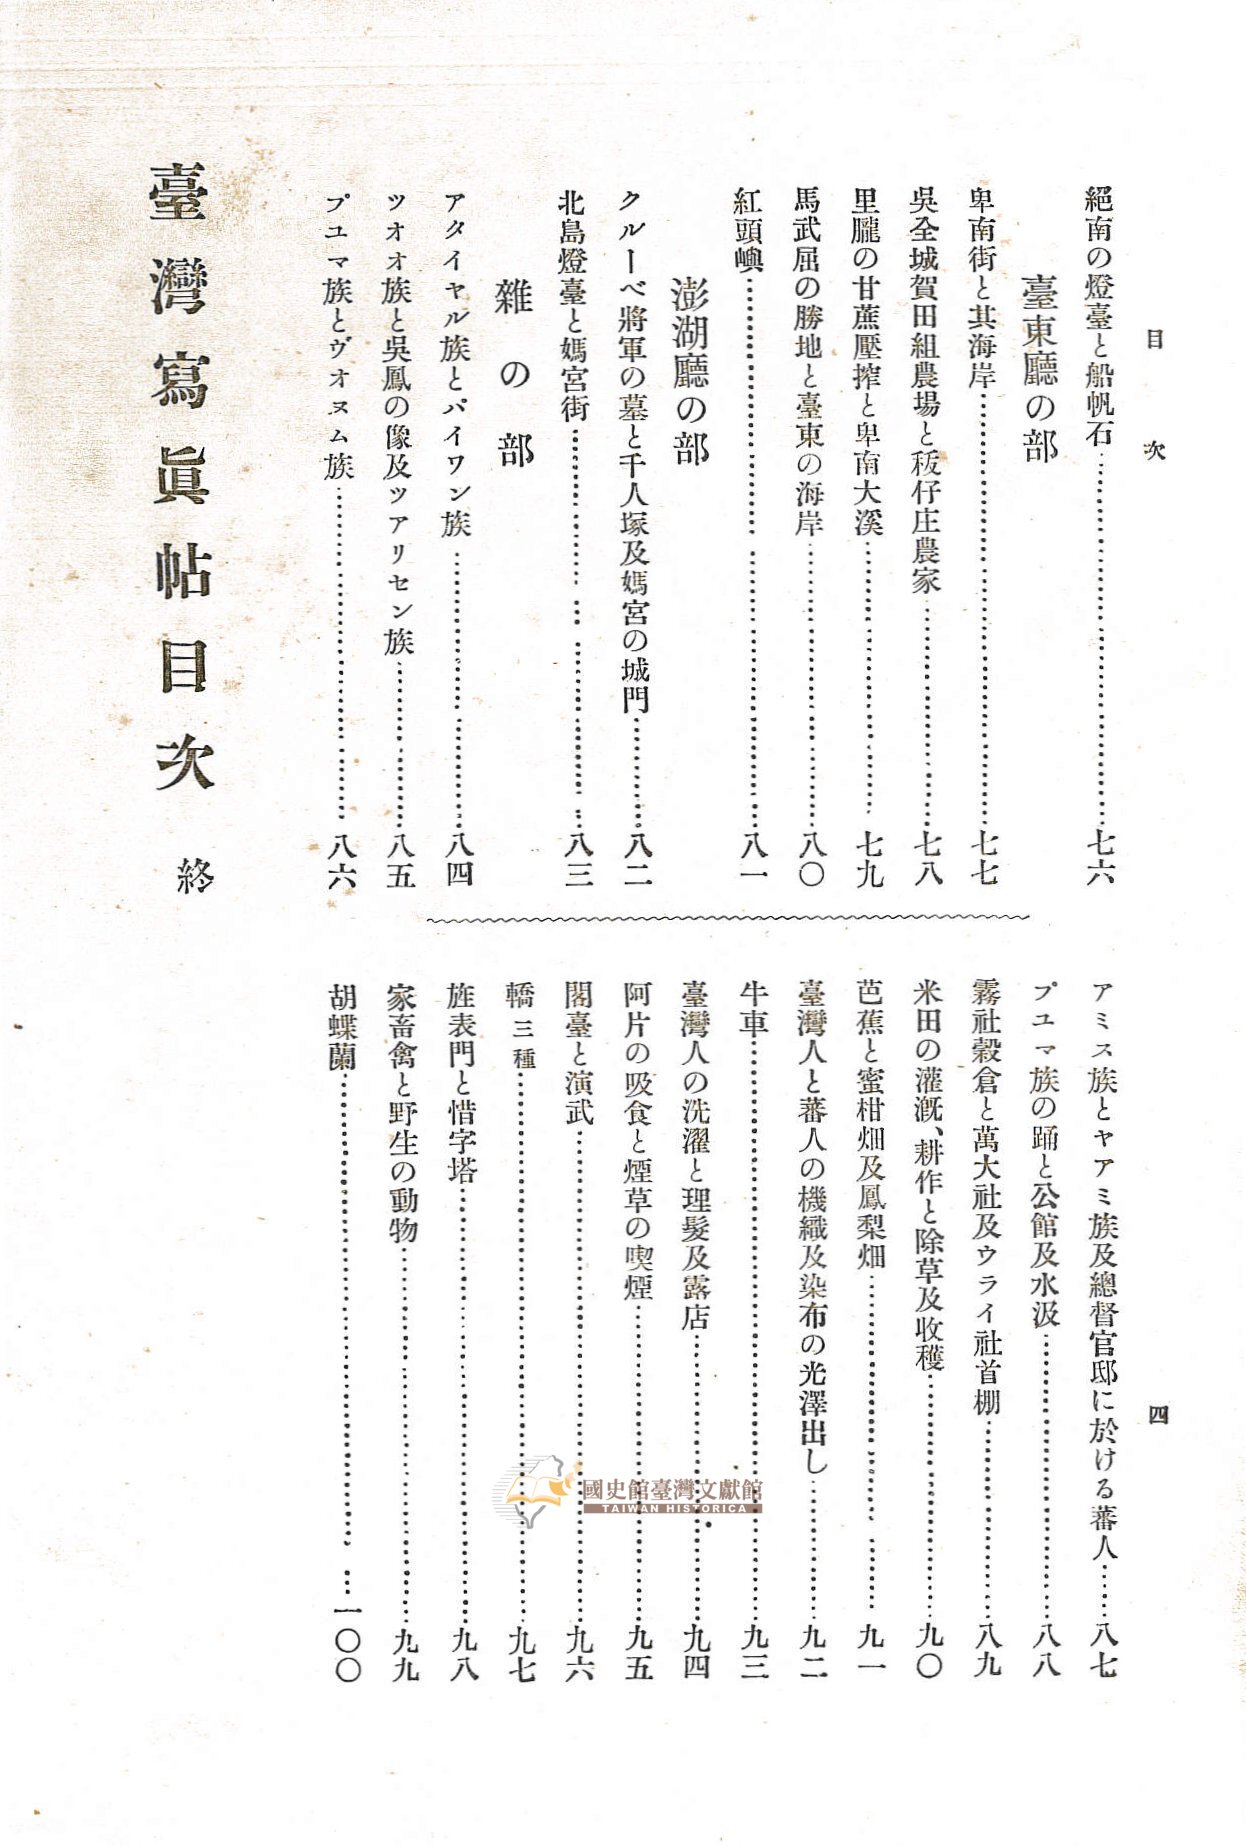 目次
絕南の燈臺と船帆石……七六
臺東廳の部
卑南街と其海岸……七七
吳全城賀田組農場と秡仔庄農家……七八
里壠の甘蔗壓搾と卑南大溪……七九
馬武屈の勝地と臺東の海岸……八〇
紅頭嶼……八一
澎湖廳の部
クルーベ將軍の墓と千人塚及媽宮の城門……八二
北島燈臺と媽宮街……八三
雜の部
アタイヤル族とパイワン族……八四
ツオオ族と吳鳳の像及ツアリセン族……八五
プユマ族とヴオヌム族……八六
アミス族とヤアミ族及總督官邸に於ける蕃人……八七
プユマ族の踊と公館及水汲……八八
霧社穀倉と萬大社及ウライ社首棚……八九
米田の灌漑、耕作と除草及收穫……九〇
芭蕉と蜜柑畑及鳳梨畑……九一
臺灣人と蕃人の機織及染布の光澤出し……九二
牛車……九三
臺灣人の洗濯と理髮及露店……九四
阿片の吸食と煙草の喫煙……九五
閣臺と演武……九六
轎三種……九七
旌表門と惜字塔……九八
家畜禽と野生の動物……九九
胡蝶蘭……一〇〇
臺灣寫眞帖目次終
四
國史館臺灣文獻館
TAIWAN HISTORICA